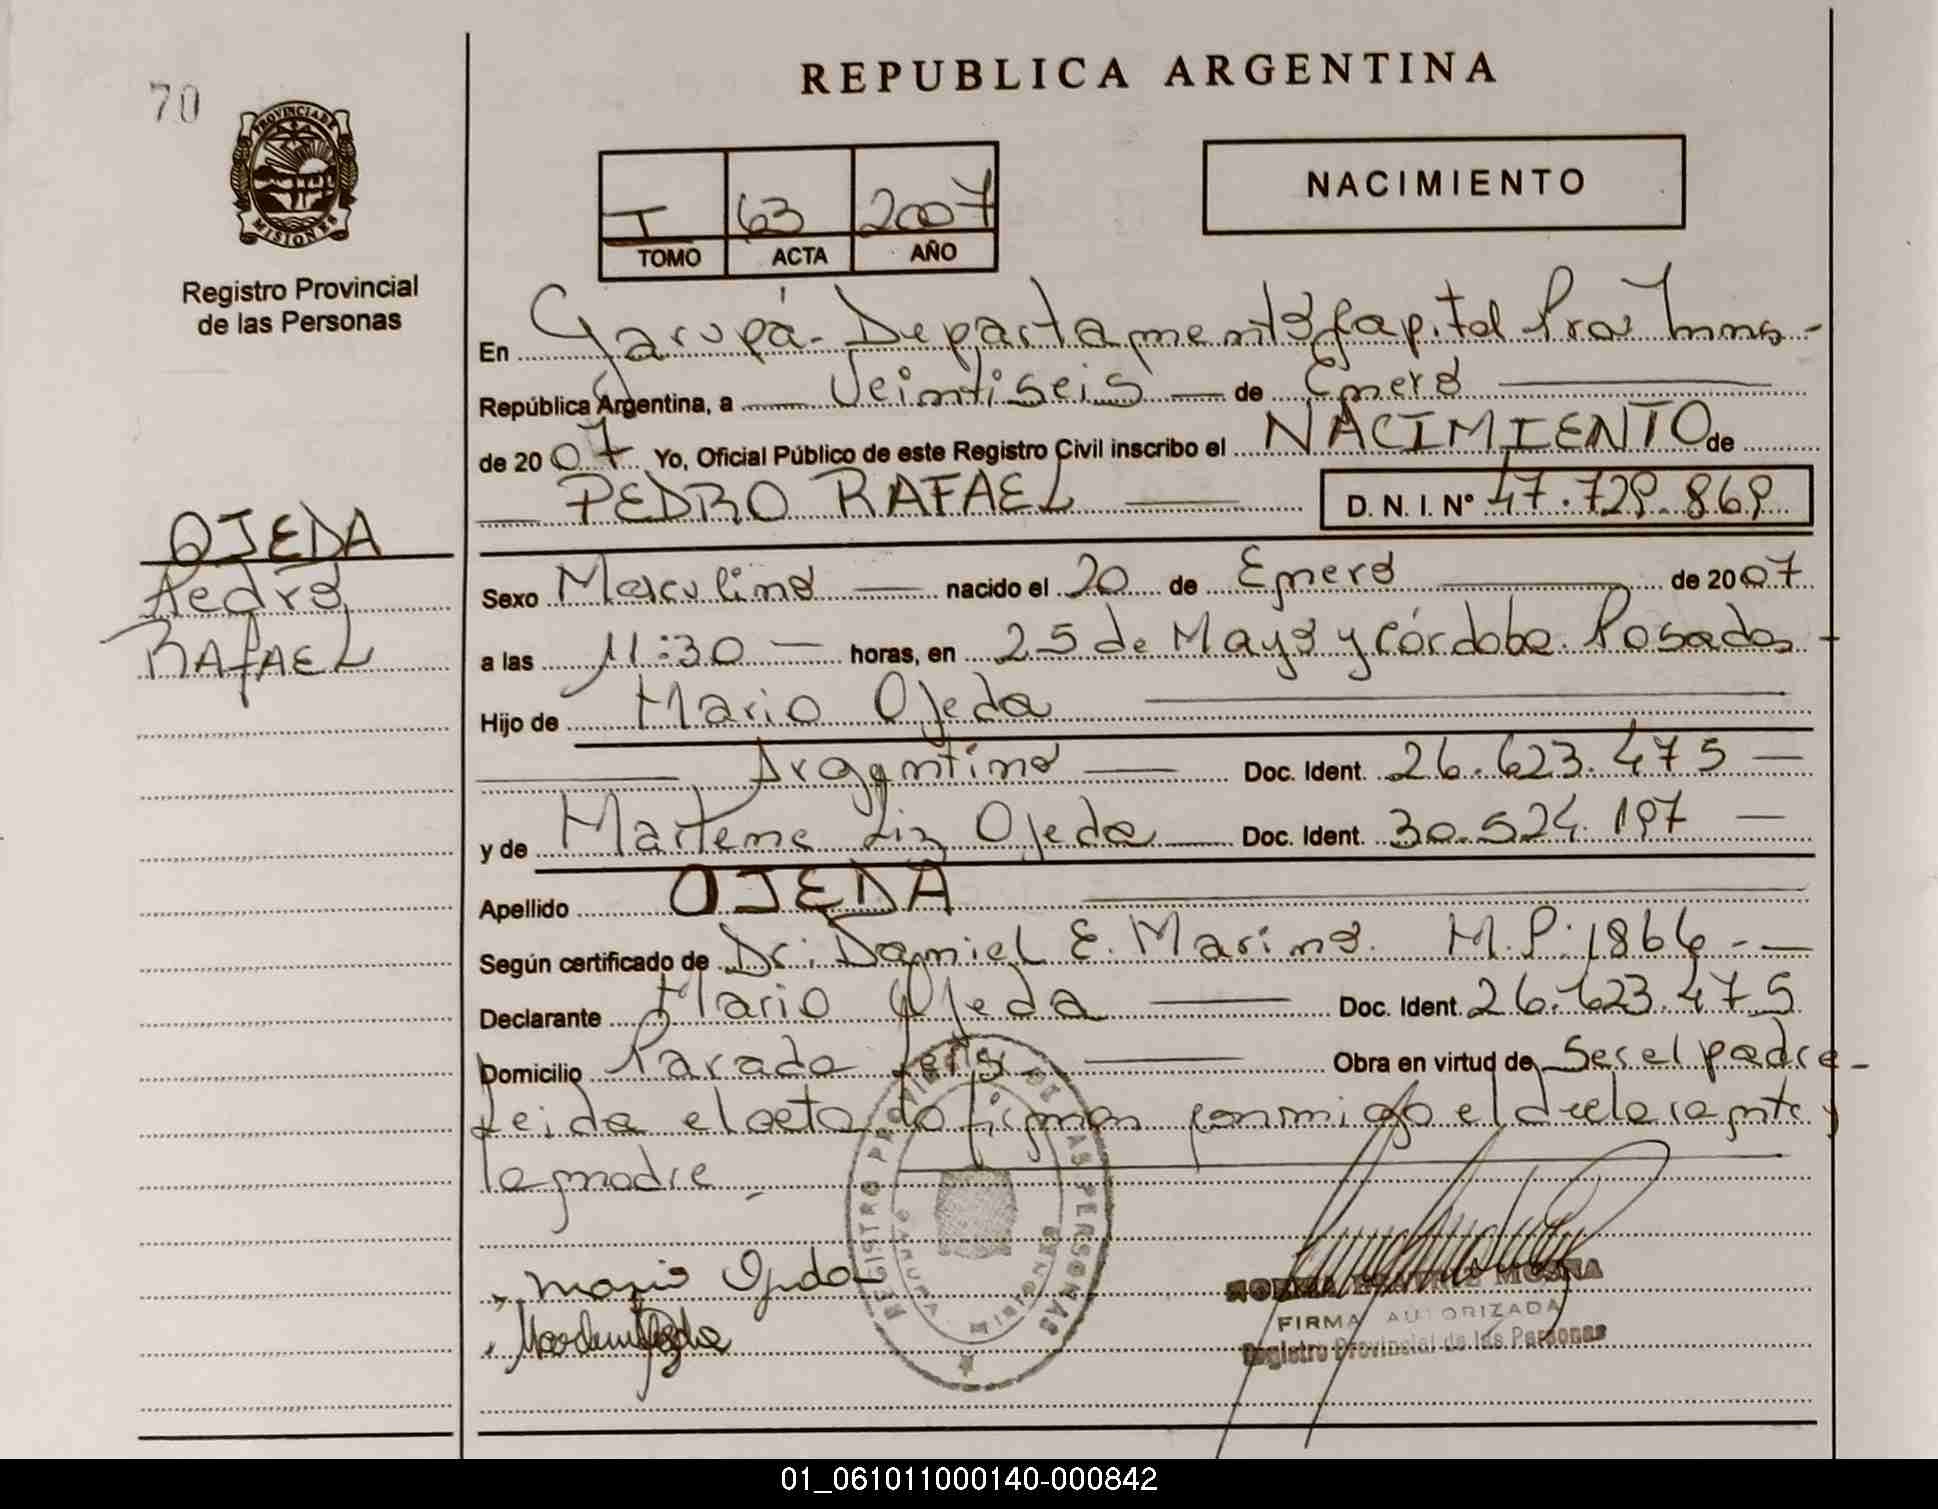 REPUBLICA ARGENTINA
70
PROVINCIA DE
MISIONES
Registro Provincial
de las Personas
I 63 2007
TOMO ACTA AÑO
NACIMIENTO
En Garupá - Departamento Capital
República Argentina, a Veintiseis de Enero
de 2007 Yo, Oficial Público de este Registro Civil inscribo el NACIMIENTO de
PEDRO RAFAEL D. N. I. N° 47.729.869
OJEDA
Pedro
RAfAEL
Sexo Masculino nacido el 20 de Enero de 2007
a las 11:30 horas, en 25 de Mayo y Córdoba. Posadas
Hijo de Mario Ojeda
Argentino Doc. Ident. 26.623.475
y de Marlene Liz Ojeda Doc. Ident. 30.524.197
Apellido OJEDA
Según certificado de Dr: Daniel E. Marino. M.P: 1864
Declarante Mario Ojeda Doc. Ident. 26.623.475
Domicilio Parada Leis Obra en virtud de Ser el padre
Leida el acta la firman conmigo el declarante y
la madre
Mario Ojeda
REGISTRO PROVINCIAL DE LAS PERSONAS
NORMA BEATRIZ MOSNA
FIRMA AUTORIZADA
Registro Provincial de las Personas
01_061011000140-000842